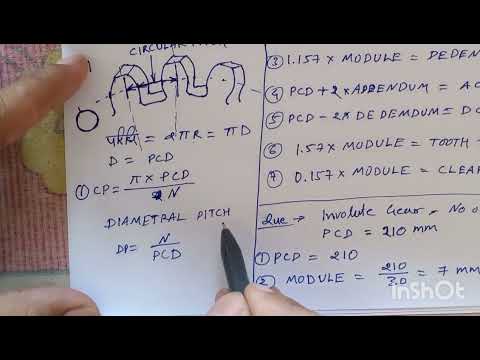 CIRCULAR
= 2πR = πD
D = PCD
① CP = π × PCD / N
DIAMETRAL PITCH
DP = N / PCD
③ 1.157 × MODULE = DEDEN
④ PCD + 2 × ADDENDUM = A
⑤ PCD - 2 × DEDEMDUM = D
⑥ 1.57 × MODULE = TOOTH
⑦ 0.157 × MODULE = CLEAR
Que → Involute Gear - No o
PCD = 210 mm
① PCD = 210
② MODULE = 210 / 30 = 7 mm
InShOt